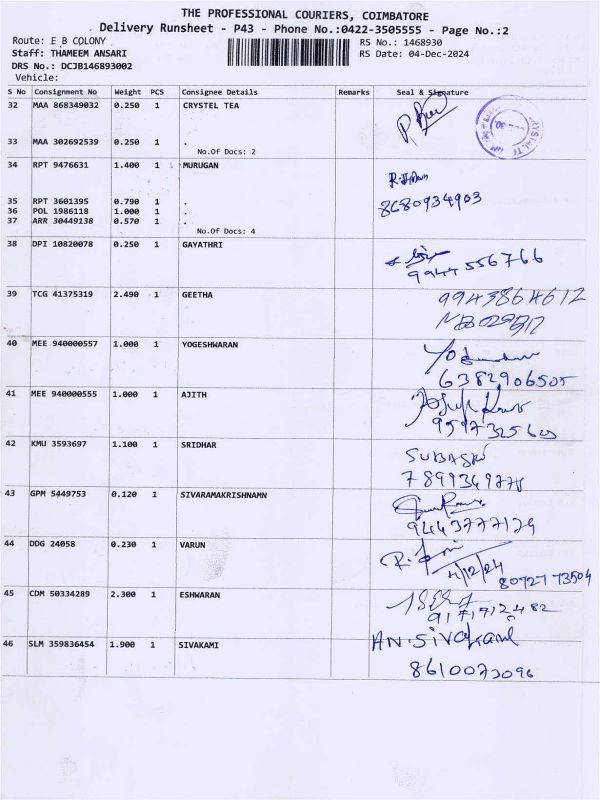 THE PROFESSIONAL COURIERS, COIMBATORE
Delivery Runsheet - P43 - Phone No.:0422-3505555 - Page No.:2
Route: E B COLONY RS No.: 1468930
Staff: THAMEEM ANSARI RS Date: 04-Dec-2024
DRS No.: DCJB146893002
Vehicle:
S No Consignment No Weight PCS Consignee Details Remarks Seal & Signature
32 MAA 868349032 0.250 1 CRYSTEL TEA
33 MAA 302692539 0.250 1 .
No.Of Docs: 2
34 RPT 9476631 1.400 1 MURUGAN
35 RPT 3601395 0.790 1 .
8680934903
36 POL 1986118 1.000 1 .
37 ARR 30449138 0.570 1 .
No.Of Docs: 4
38 DPI 10820078 0.250 1 GAYATHRI
9944556766
39 TCG 41375319 2.490 1 GEETHA
9943864612
40 MEE 940000557 1.000 1 YOGESHWARAN
6382906505
41 MEE 940000555 1.000 1 AJITH
42 KMU 3593697 1.100 1 SRIDHAR
SUBASRI
43 GPM 5449753 0.120 1 SIVARAMAKRISHNAMN
9443777129
44 DDG 24058 0.230 1 VARUN
4/12/24
80727 73504
45 CDM 50334289 2.300 1 ESHWARAN
9171712482
46 SLM 359836454 1.900 1 SIVAKAMI
AN.Sivakami
8610073096